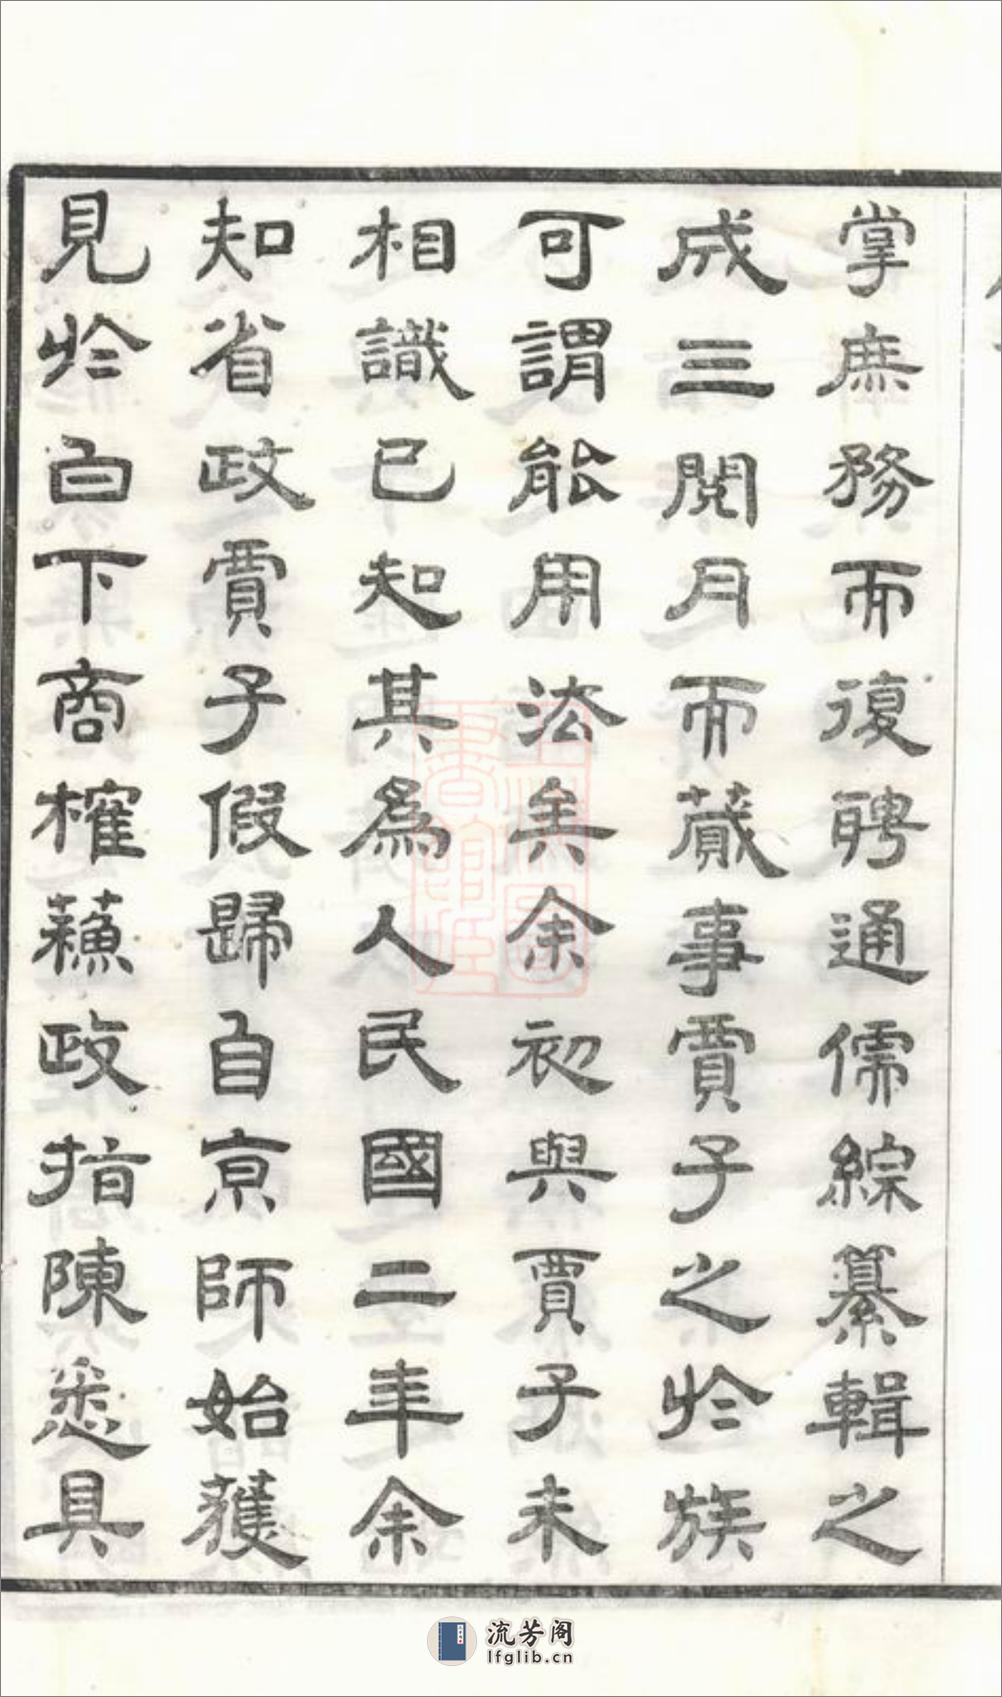 掌庶務而復聘通儒綜纂輯之
成三閱月而蕆事賈子之於族
可謂能用法矣余初與賈子未
相識已知其為人民國二年余
知省政賈子假歸自京師始獲
見於白下商榷蘇政指陳悉具
流芳阁
lfglib.cn